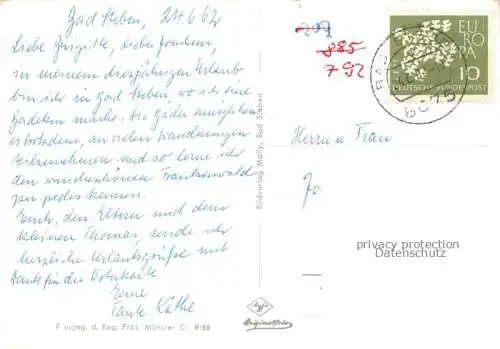 Bad Steben, 24.6.62
Liebe Brigitte, lieber Joachim,
in meinem diesjährigen Urlaub
bin ich in Bad Steben, wo ich eine
Badekur mache. Die Bäder
trotzdem, an vielen Wanderungen
teilzunehmen und so lerne ich
den wunderschönen Frankenwald
per pedes kennen.
Euch, den Eltern und dem
kleinen Thomas sende ich
herzliche Urlaubsgrüße mit
Dank für die Osterkarte
Eure
Tante Käthe
Freigeg. d. Reg. Präs. Münster Cr. 6166
Bildverlag Mally, Bad Steben
Agfa
Originalfoto
297
885
792
EU
RO
PA
10
DEUTSCHE BUNDESPOST
Herrn u. Frau
privacy protection
Datenschutz